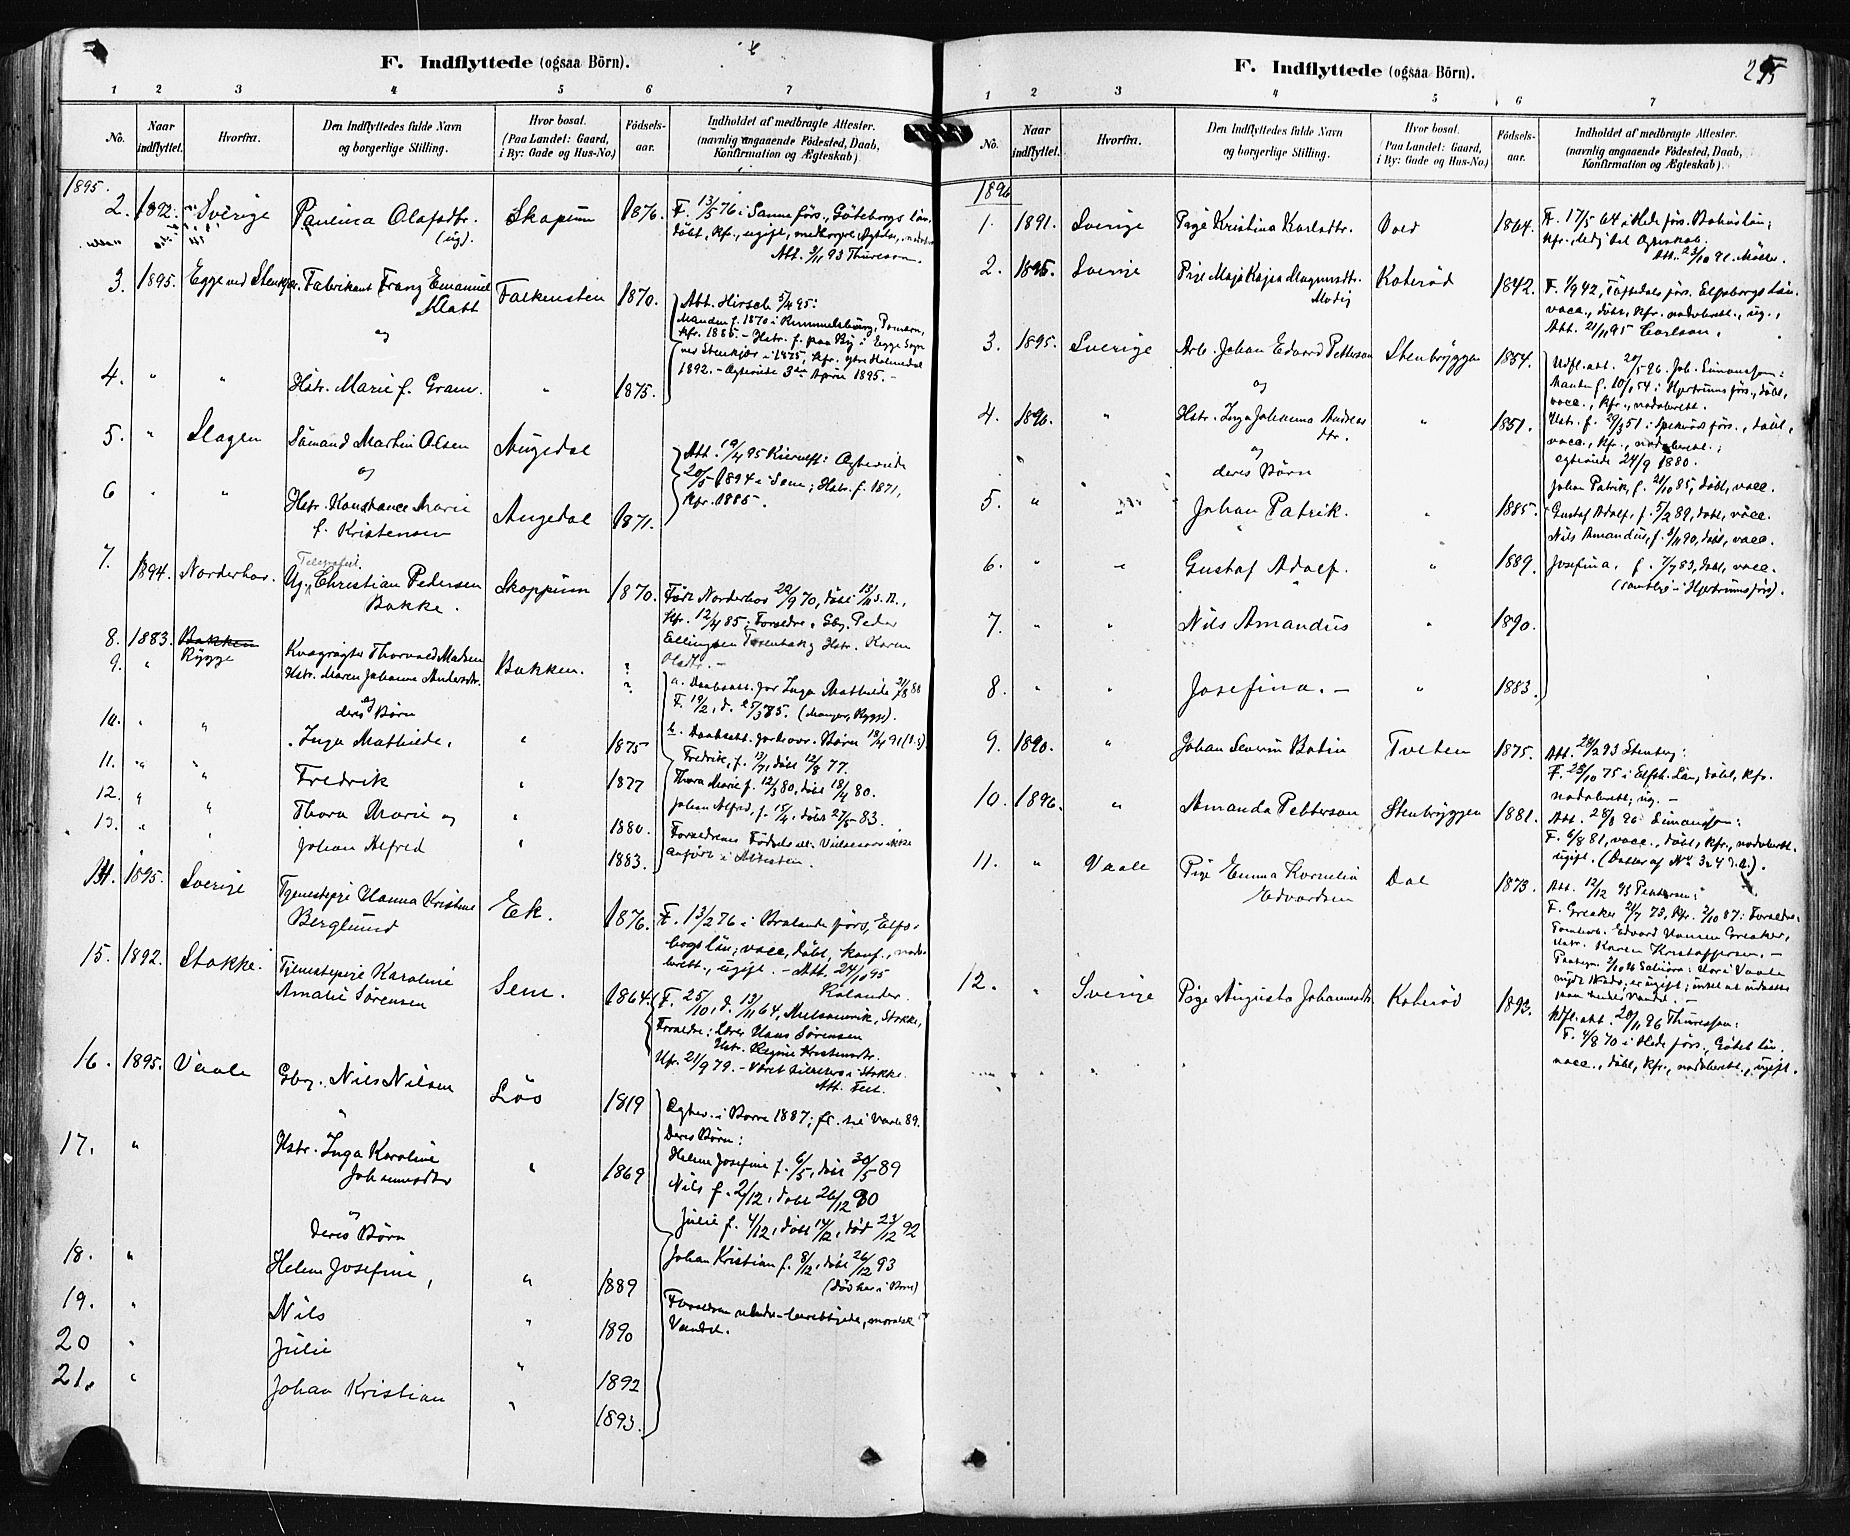 F. Indflyttede (ogsaa Börn).
1 2 3 4 5 6 7
No. Naar indflyttet. Hvorfra. Den Indflyttedes fulde Navn og borgerlige Stilling. Hvor bosat. (Paa Landet: Gaard, i By: Gade og Hus-No.) Födsels-aar. Indholdet af medbragte Attester. (navnlig angaaende Födested, Daab, Konfirmation og Ægteskab)
1895.
2. 1892. Sverige Paulina Olafsdtr. (ug) Skopum 1876. F. 13/5 76 i Sanneförs., Göteborgs län,
döbt, kfr., ugift,
Att. 3/11 93 Thuresson.
3. 1895. Egge ved Stenkjær. Fabrikant Franz Emanuel Klatt Falkensten 1870. Att. Hirsch 5/4 95:
Manden f. 1870 i Rummelsburg, Pomern,
kfr. 1885. - Hstr. f. paa By i Egge Sogn
ved Stenkjær i 1875, kfr. ytre Holmedal
1892. - Ægteviede 3die April 1895. -
og
4. " " Hstr. Marie f. Gram. " 1875.
5. " Slagen Sömand Martin Olsen Augedal
Att. 19/4 95 Kierulf: Ægteviede
20/5 1894 i Sem; Hstr. f. 1871,
kfr. 1885.
og
6 " " Hstr. Konstance Marie f. Kristensen Augedal 1871.
7. 1894. Norderhov. Telegrafist Ug. Christian Pedersen Bakke. Skoppum 1870. Född Norderhov 22/9 70, döbt 13/11 s. A.,
kfr. 12/4 85; Foreldre, Gbr. Peder
Ellingsen Hstr. Karen
Olsdtr. -
8. 1883. Bakken Rygge Kvægrøgter Thorvald Madsen Bakken. ?
9. " Hstr. Maren Johanne Andersdtr. ?
a. Daabsatt. for Inga Mathilde 21/8 88
F. 19/2, d. 25/3 75. (Rygge).
og
deres Børn
10. " " Inga Mathilde, " 1875
b. Daabsatt. for hver. Børn 18/4 91
11. " " Fredrik " 1877
Fredrik, f. 13/7, döbt 12/8 77.
12. " " Thora Marie og " 1880.
Thora Marie f. 12/3 80, döbt 18/4 80.
13. " " Johan Alfred " 1883.
Johan Alfred, f. 15/4, döbt 27/5 83.
Forældrenes Födsels el. Vielsesaar ikke
anført i Attesten.
14. 1895. Sverige Tjenestepige Hanna Kristine Berglund Ek. 1876. F. 13/2 76 i Bralanda förs., Elfs-
borgs län; vacc., döbt, konf., nadv-
berett., ugift. - Att. 24/10 95
Kolander.
15. 1892. Stokke. Tjenestepige Karoline Amalie Sørensen Sem. 1864. F. 25/10, d. 13/11 64, Melsomvik, Stokke,
Forældre: Hans Sørensen
Hstr. Regine Kristensdtr.
Kfr. 21/9 79. - i Stokke.
Att.
16. 1895. Vaale Gbr. Nils Nilsen Løs 1819
Ægtev. i Borre 1887; fl. til Vaale 89.
Deres Børn:
"
17. " Hstr. Inga Karoline Johannesdtr " 1869
Helene Josefine f. 6/5, döbt 30/5 89
Nils f. 2/12, döbt 26/12 90
Julie f. 4/12, döbt 14/12, död 23/12 92
og
Deres Børn
18. " Helene Josefine, " 1889
Johan Kristian f. 8/12, döbt 26/12 93
(Død her i Borre)
19. " Nils " 1890
Forældrene
Vandel.
20 " Julie " 1892
21. " Johan Kristian " 1893.
F. Indflyttede (ogsaa Börn).
1 2 3 4 5 6 7
No. Naar indflyttet. Hvorfra. Den Indflyttedes fulde Navn og borgerlige Stilling. Hvor bosat. (Paa Landet: Gaard, i By: Gade og Hus-No.) Födsels-aar. Indholdet af medbragte Attester. (navnlig angaaende Födested, Daab, Konfirmation og Ægteskab)
1896
1. 1891. Sverige Pige Kristina Karlsdtr. Vold 1864. F. 17/5 64 i Hede förs. Bohus län;
kfr., ledig til Ægteskab.
Att. 23/10 91. Möller.
2. 1895. Sverige Pige Maja Kajsa Magnusdtr. Modig Koterød 1842. F. 1/9 42, Töftedals förs. Elfsborgs Län.
vacc., döbt, kfr. nadvberett., ug.,
Att. 21/11 95 Carlson.
3. 1895. Sverige Arb. Johan Edvard Petterson Stenbryggen 1854. Udfl. att. 20/5 96. Joh. Simonsson:
Manden f. 10/1 54 i Hjertrums förs., döbt,
vacc., kfr., nadvberett.
og
4. 1896. " Hstr. Inga Johanna Andreasdtr. " 1851. Hstr. f. 29/3 51 i förs., döbt,
vacc., kfr., nadvberett.;
Ægteviede 24/9 1880.
og
deres Börn
5. " " Johan Patrik. " 1885.
Johan Patrik, f. 21/10 85, döbt, vacc.
Gustaf Adolf, f. 5/2 89, döbt, vacc.
Nils Amandus, f. 3/11 90, döbt, vacc.
6. " " Gustaf Adolf. " 1889.
Josefina, f. 7/7 83, döbt, vacc.
(samtlige i Hjertrums förs).
7. " " Nils Amandus " 1890.
8. " " Josefina. - " 1883.
9. 1890. " Johan Severin Bolin Tveten 1875. Att. 24/2 93 Stenberg:
F. 25/10 75 i Elfsb. Län, döbt, kfr.
nadvberett; ug. -
10. 1896. " Amanda Petterson Stenbryggen 1881. Att. 28/8 96 Simonsson:
F. 6/8 81, vacc., döbt, kfr., nadvberett.
ugift. (Datter af No. 3 & 4 d. A.).
11. " Vaale Pige Emma Kornelia Edvardsen Dal 1873. Att. 12/12 93
F. Greaker 21/7 73, kfr. 2/10 87: Forældre:
Edvard Hansen Greaker,
Hstr. Karen Kristoffersen. -
12. " Sverige Pige Augusta Johannesdtr. Koterød 1892. Udfl. att. 20/11 96 Thuresson:
F. 4/8 70 i Hede förs., Göteb. län.
vacc., döbt, kfr., nadvberett., ugift.